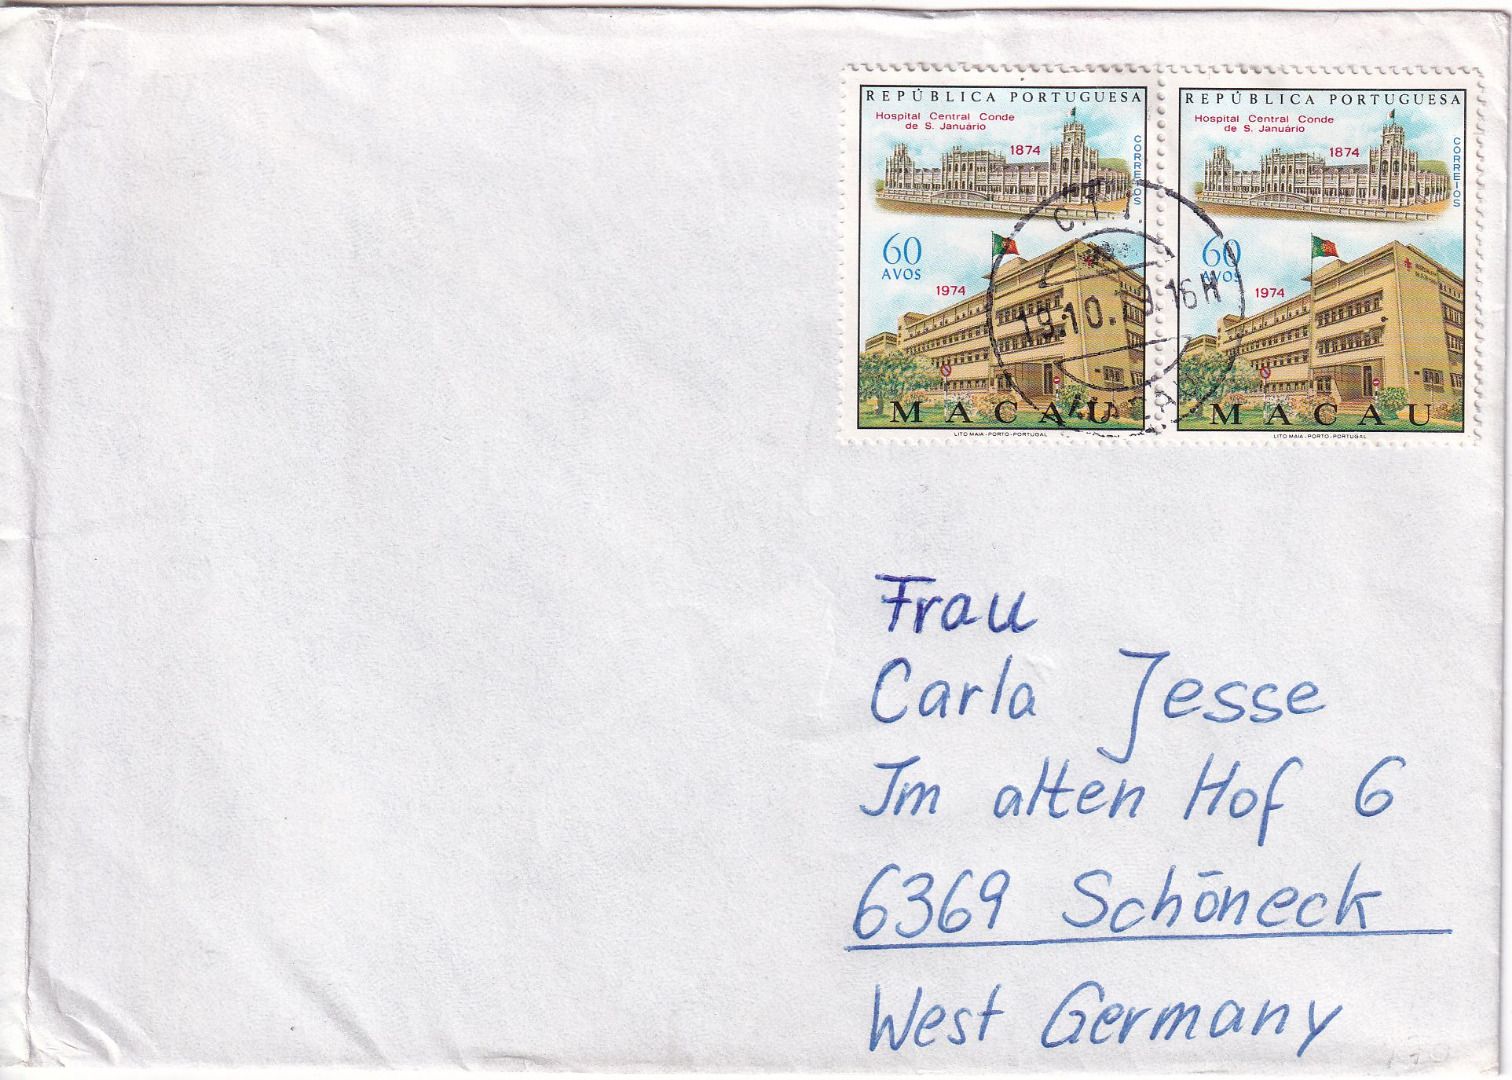 REPÚBLICA PORTUGUESA
Hospital Central Conde
de S. Januário
1874
CORREIOS
60
AVOS
1974
MACAU
LITO MAIA - PORTO - PORTUGAL
REPÚBLICA PORTUGUESA
Hospital Central Conde
de S. Januário
1874
CORREIOS
60
AVOS
1974
MACAU
LITO MAIA - PORTO - PORTUGAL
C.T.T.
19.10.79.16H
Frau
Carla Jesse
Im alten Hof 6
6369 Schöneck
West Germany